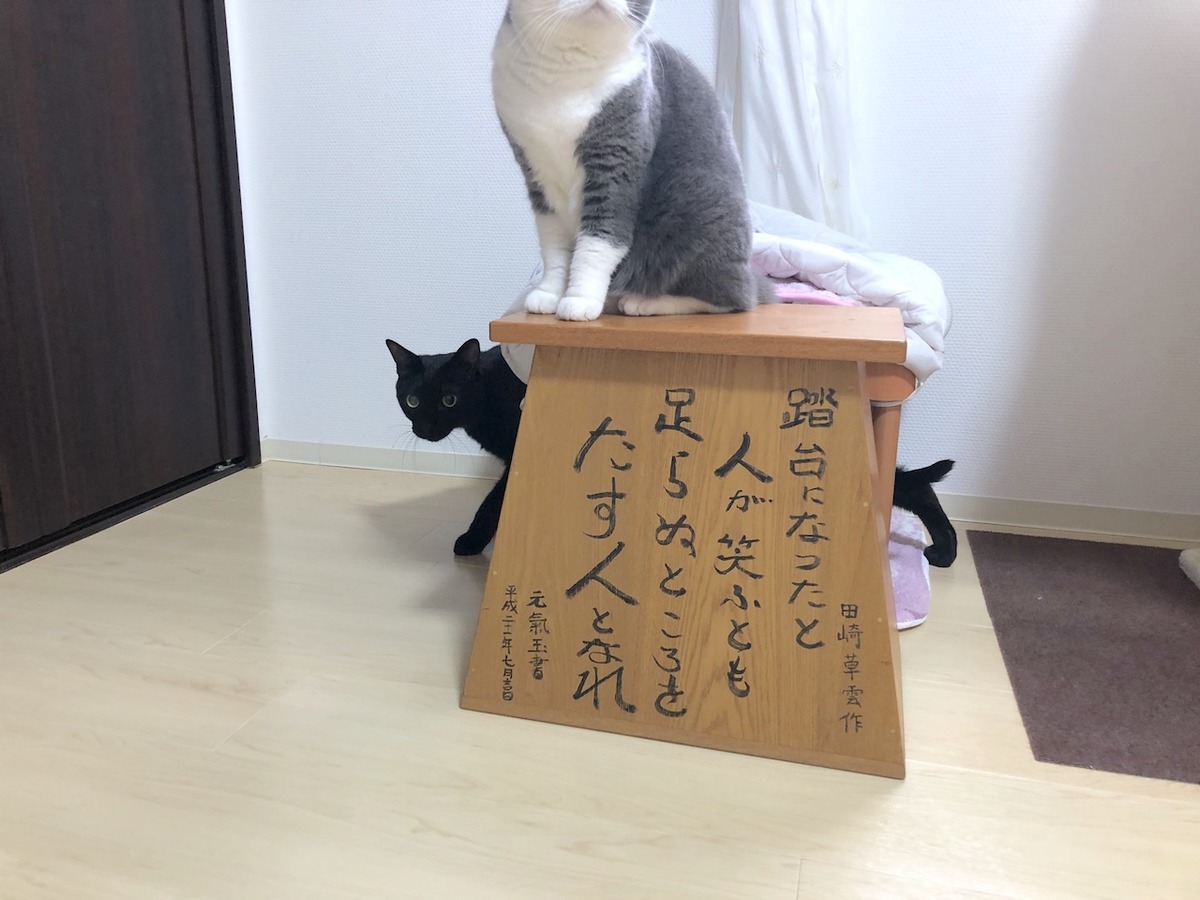 踏台になったと
人が笑ふとも
足らぬところを
たす人となれ
田崎草雲作
元氣玉書
平成二十一年七月吉日